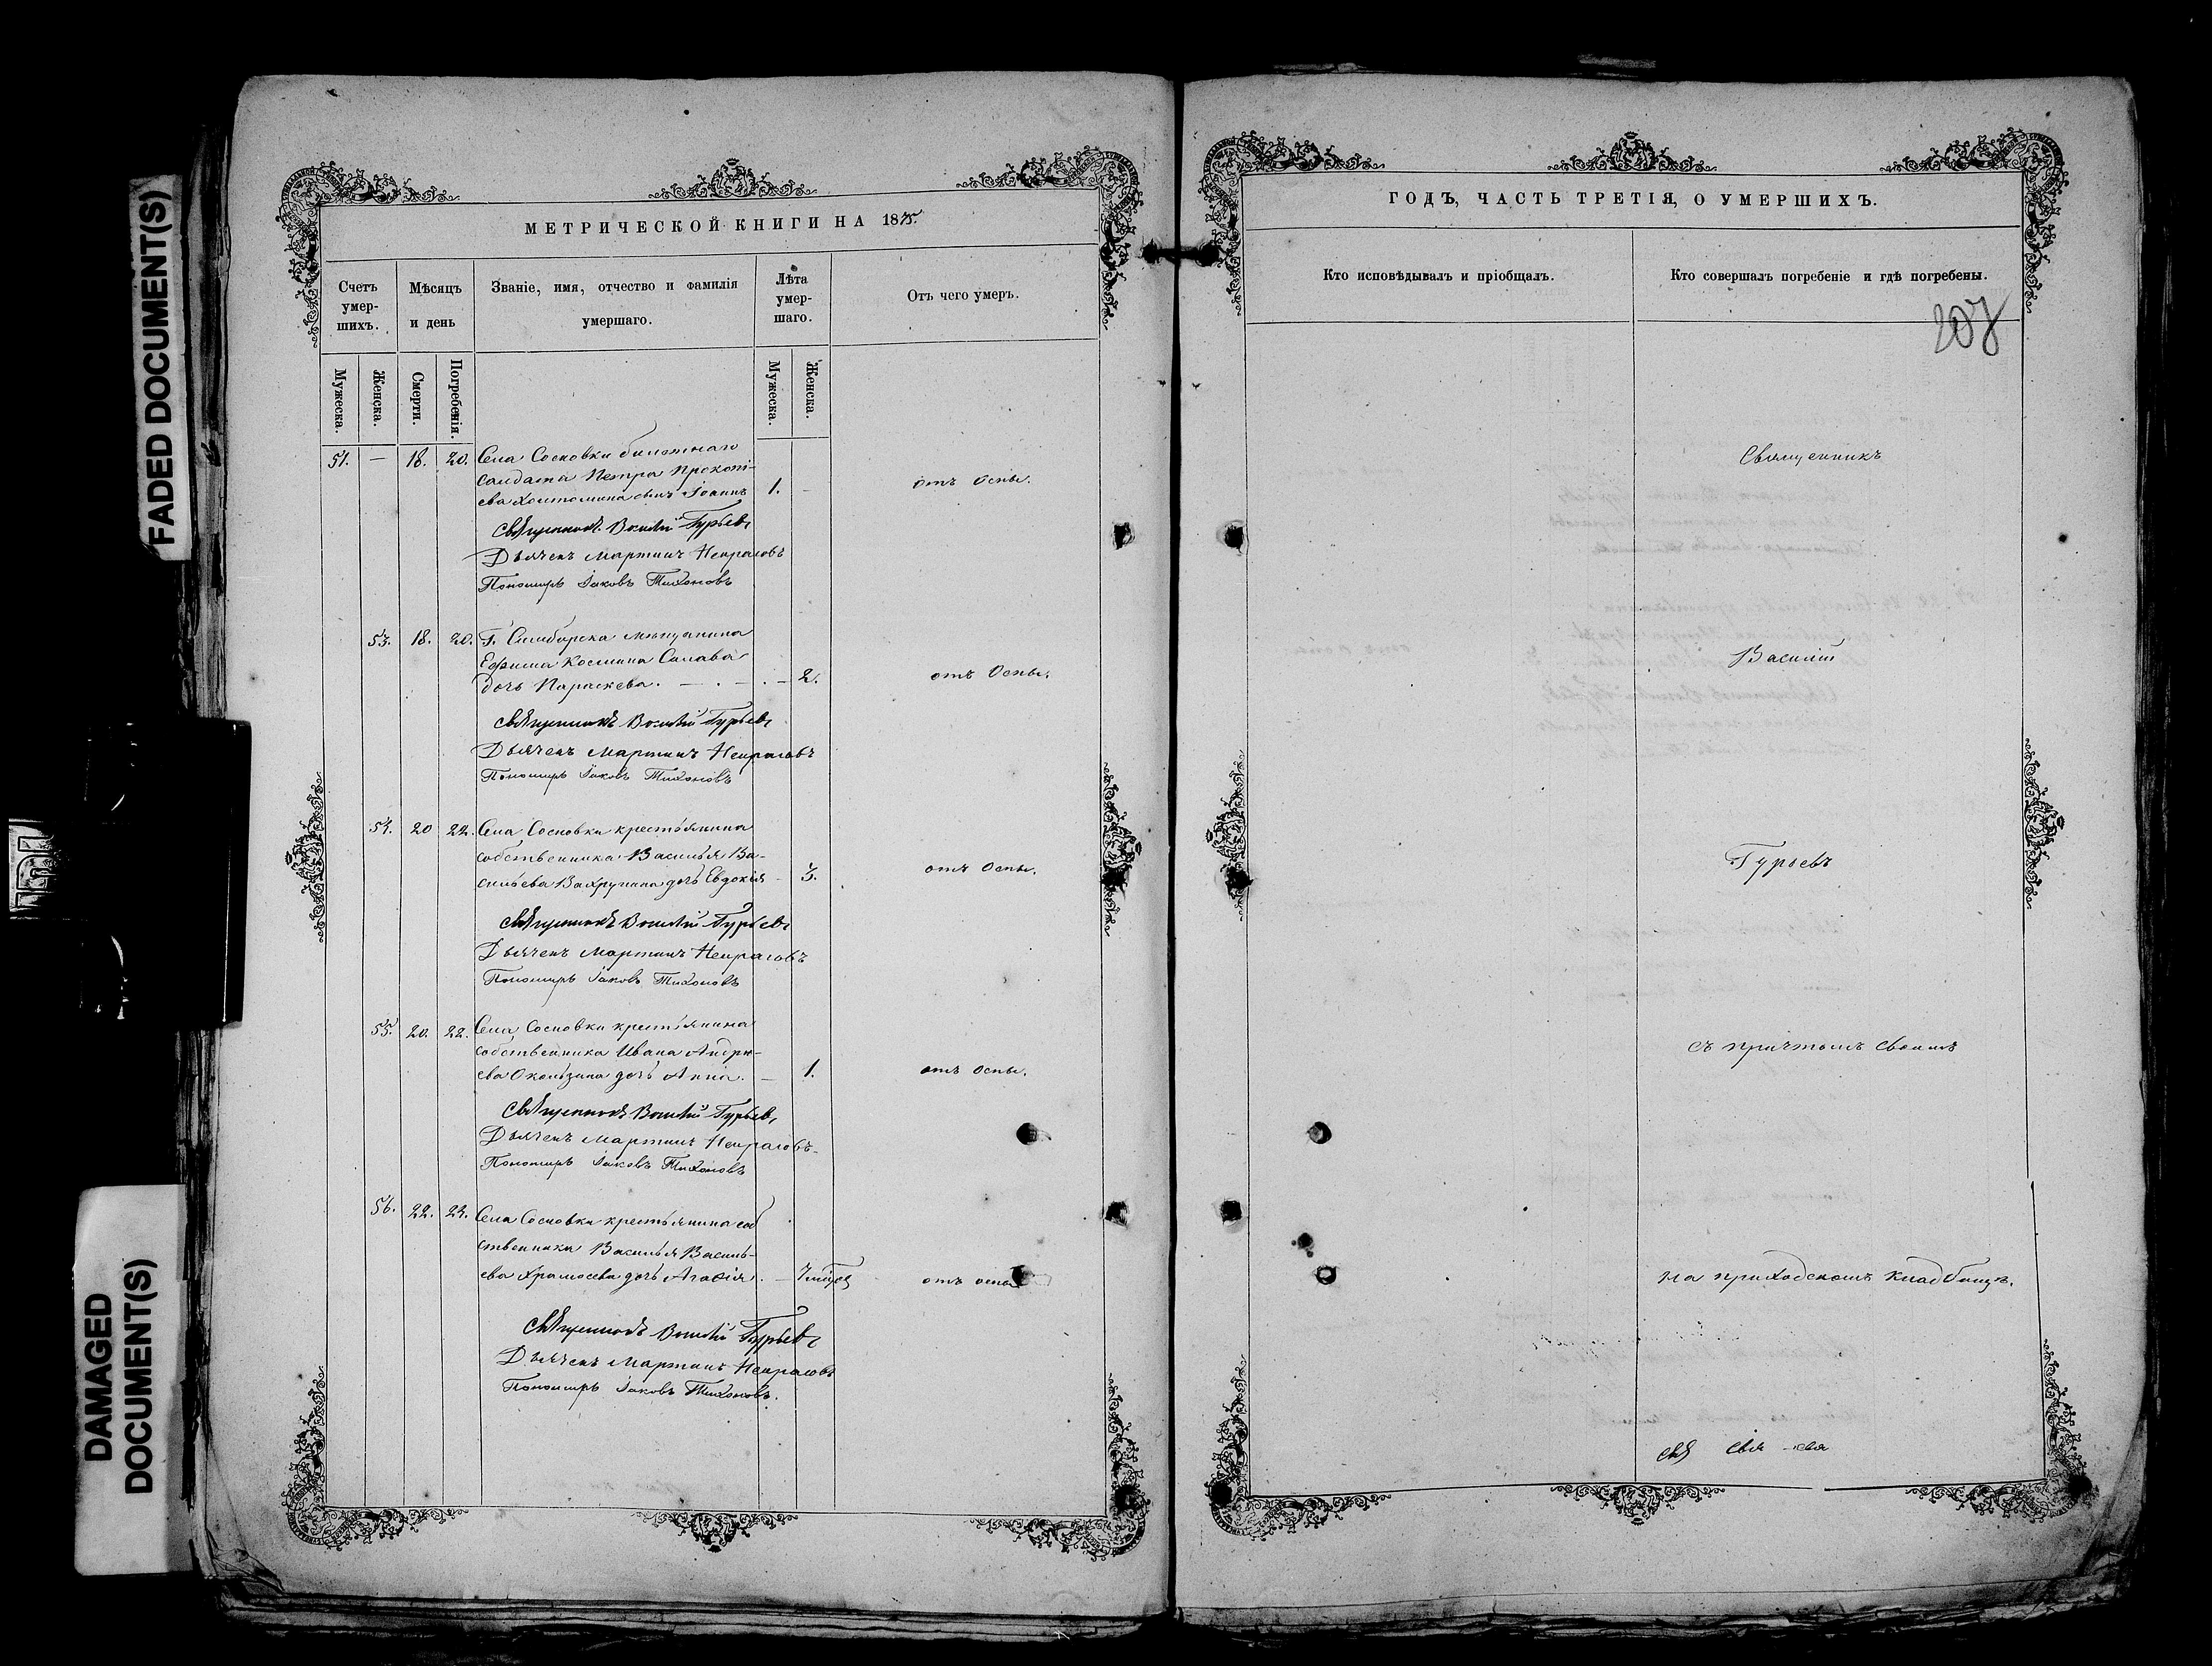 FADED DOCUMENT(S)
DAMAGED
DOCUMENT(S)
МЕТРИЧЕСКОЙ КНИГИ НА 1875
Счетъ умер-шихъ.
Мѣсяцъ и день
Званіе, имя, отчество и фамилія умершаго.
Лѣта умер-шаго.
Отъ чего умеръ.
Мужеска.
Женска.
Смерти.
Погребенія.
Мужеска.
Женска.
51. — 18. 20. Села Сосновки билетнаго
солдата Петра Прокопі-
ева сынъ Іоаннъ 1. - отъ оспы.
Священникъ Василій Гурьевъ
Дьячекъ Мартинъ Некрасовъ
Пономарь Іаковъ Тихоновъ
53. 18. 20. Г. Симбирска мѣщанина
Ефима Космина
дочь Параскева. — . — . — 2. отъ Оспы.
Священникъ Василій Гурьевъ
Дьячекъ Мартинъ Некрасовъ
Пономарь Іаковъ Тихоновъ
54. 20 22. Села Сосновки крестьянина
собственника Василья Ва-
сильева дочь Евдокія - 3. отъ Оспы.
Священникъ Василій Гурьевъ
Дьячекъ Мартинъ Некрасовъ
Пономарь Іаковъ Тихоновъ
55. 20. 22. Села Сосновки крестьянина
собственника Ивана Андре-
ева дочь Анна. — 1. отъ оспы.
Священникъ Василій Гурьевъ
Дьячекъ Мартинъ Некрасовъ
Пономарь Іаковъ Тихоновъ
56. 22. Села Сосновки крестьянина соб
ственника Василья Василь-
ева дочь Агафія. — 7 отъ оспы
Священникъ Василій Гурьевъ
Дьячекъ Мартинъ Некрасовъ
Пономарь Іаковъ Тихоновъ.
ГОДЪ, ЧАСТЬ ТРЕТІЯ, О УМЕРШИХЪ.
Кто исповѣдывалъ и пріобщалъ.
Кто совершалъ погребеніе и гдѣ погребены.
207
Священникъ
Василій
Гурьевъ
съ причтомъ своимъ
на приходскомъ кладбищѣ.